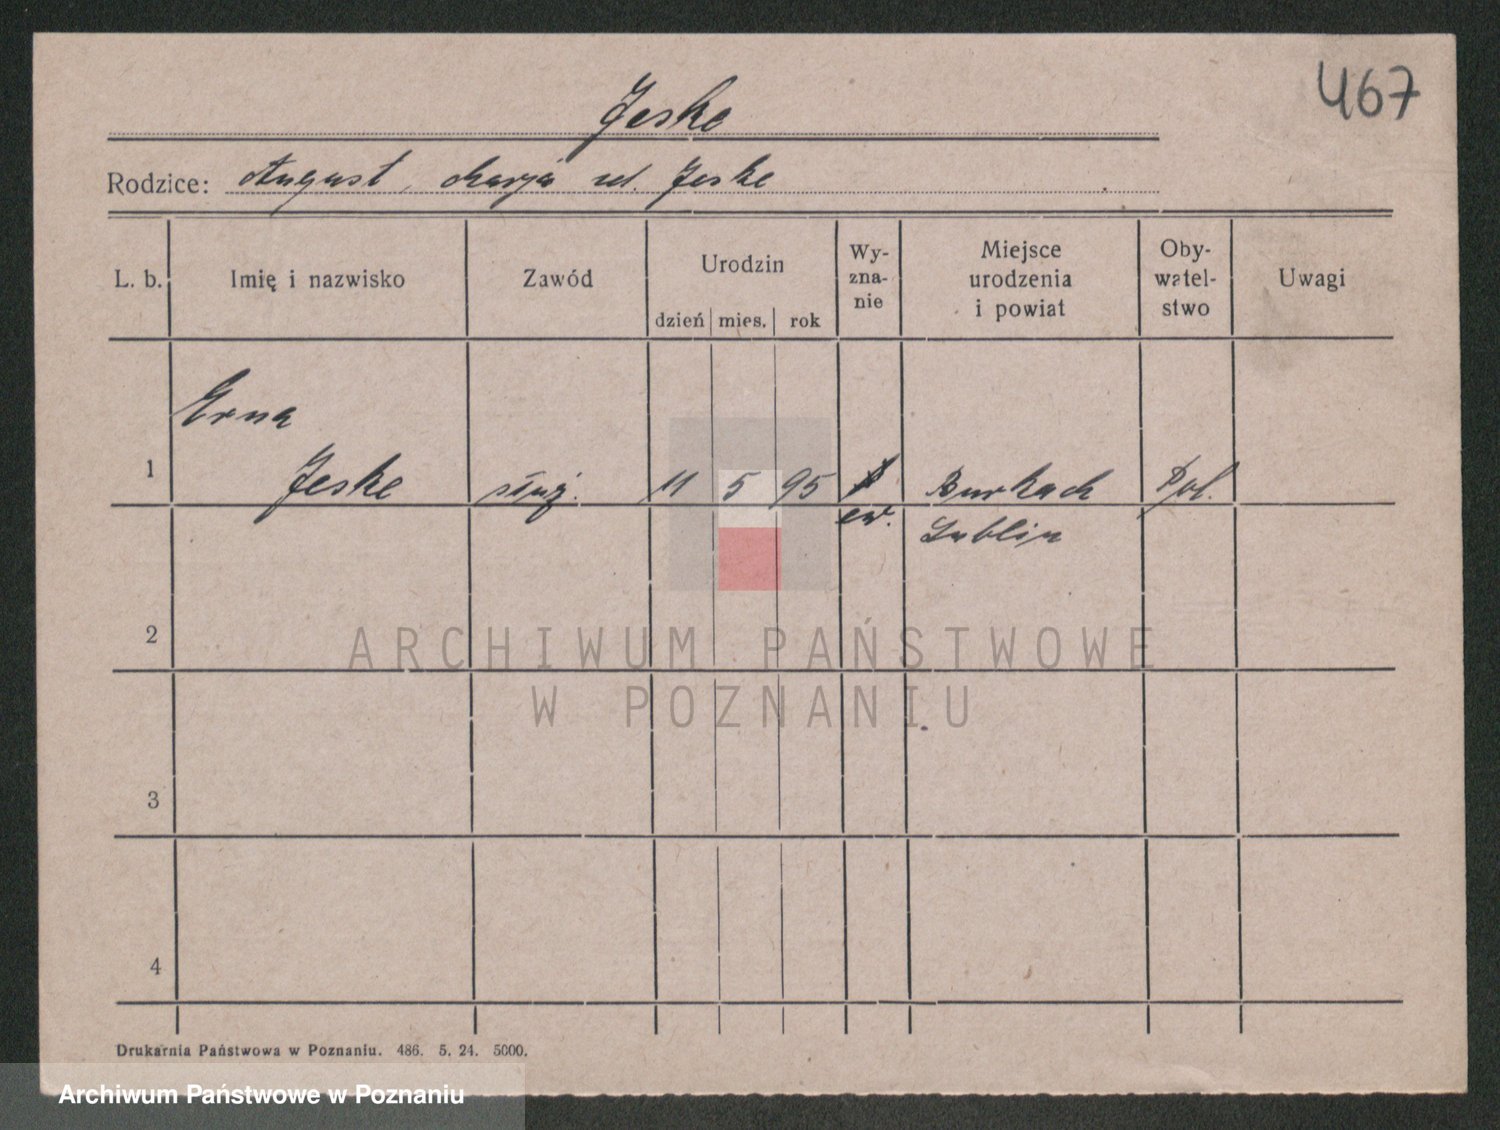 467
Jeske
Rodzice: August, Marja ud. Jeske
L. b. Imię i nazwisko Zawód Urodzin dzień mies. rok Wy-zna-nie Miejsce urodzenia i powiat Oby-watel-stwo Uwagi
Erna
1 Jeske służ. 11 5 95 Burkach Pol.
ew. Lublin
2
ARCHIWUM PAŃSTWOWE
W POZNANIU
3
4
Drukarnia Państwowa w Poznaniu. 486. 5. 24. 5000.
Archiwum Państwowe w Poznaniu